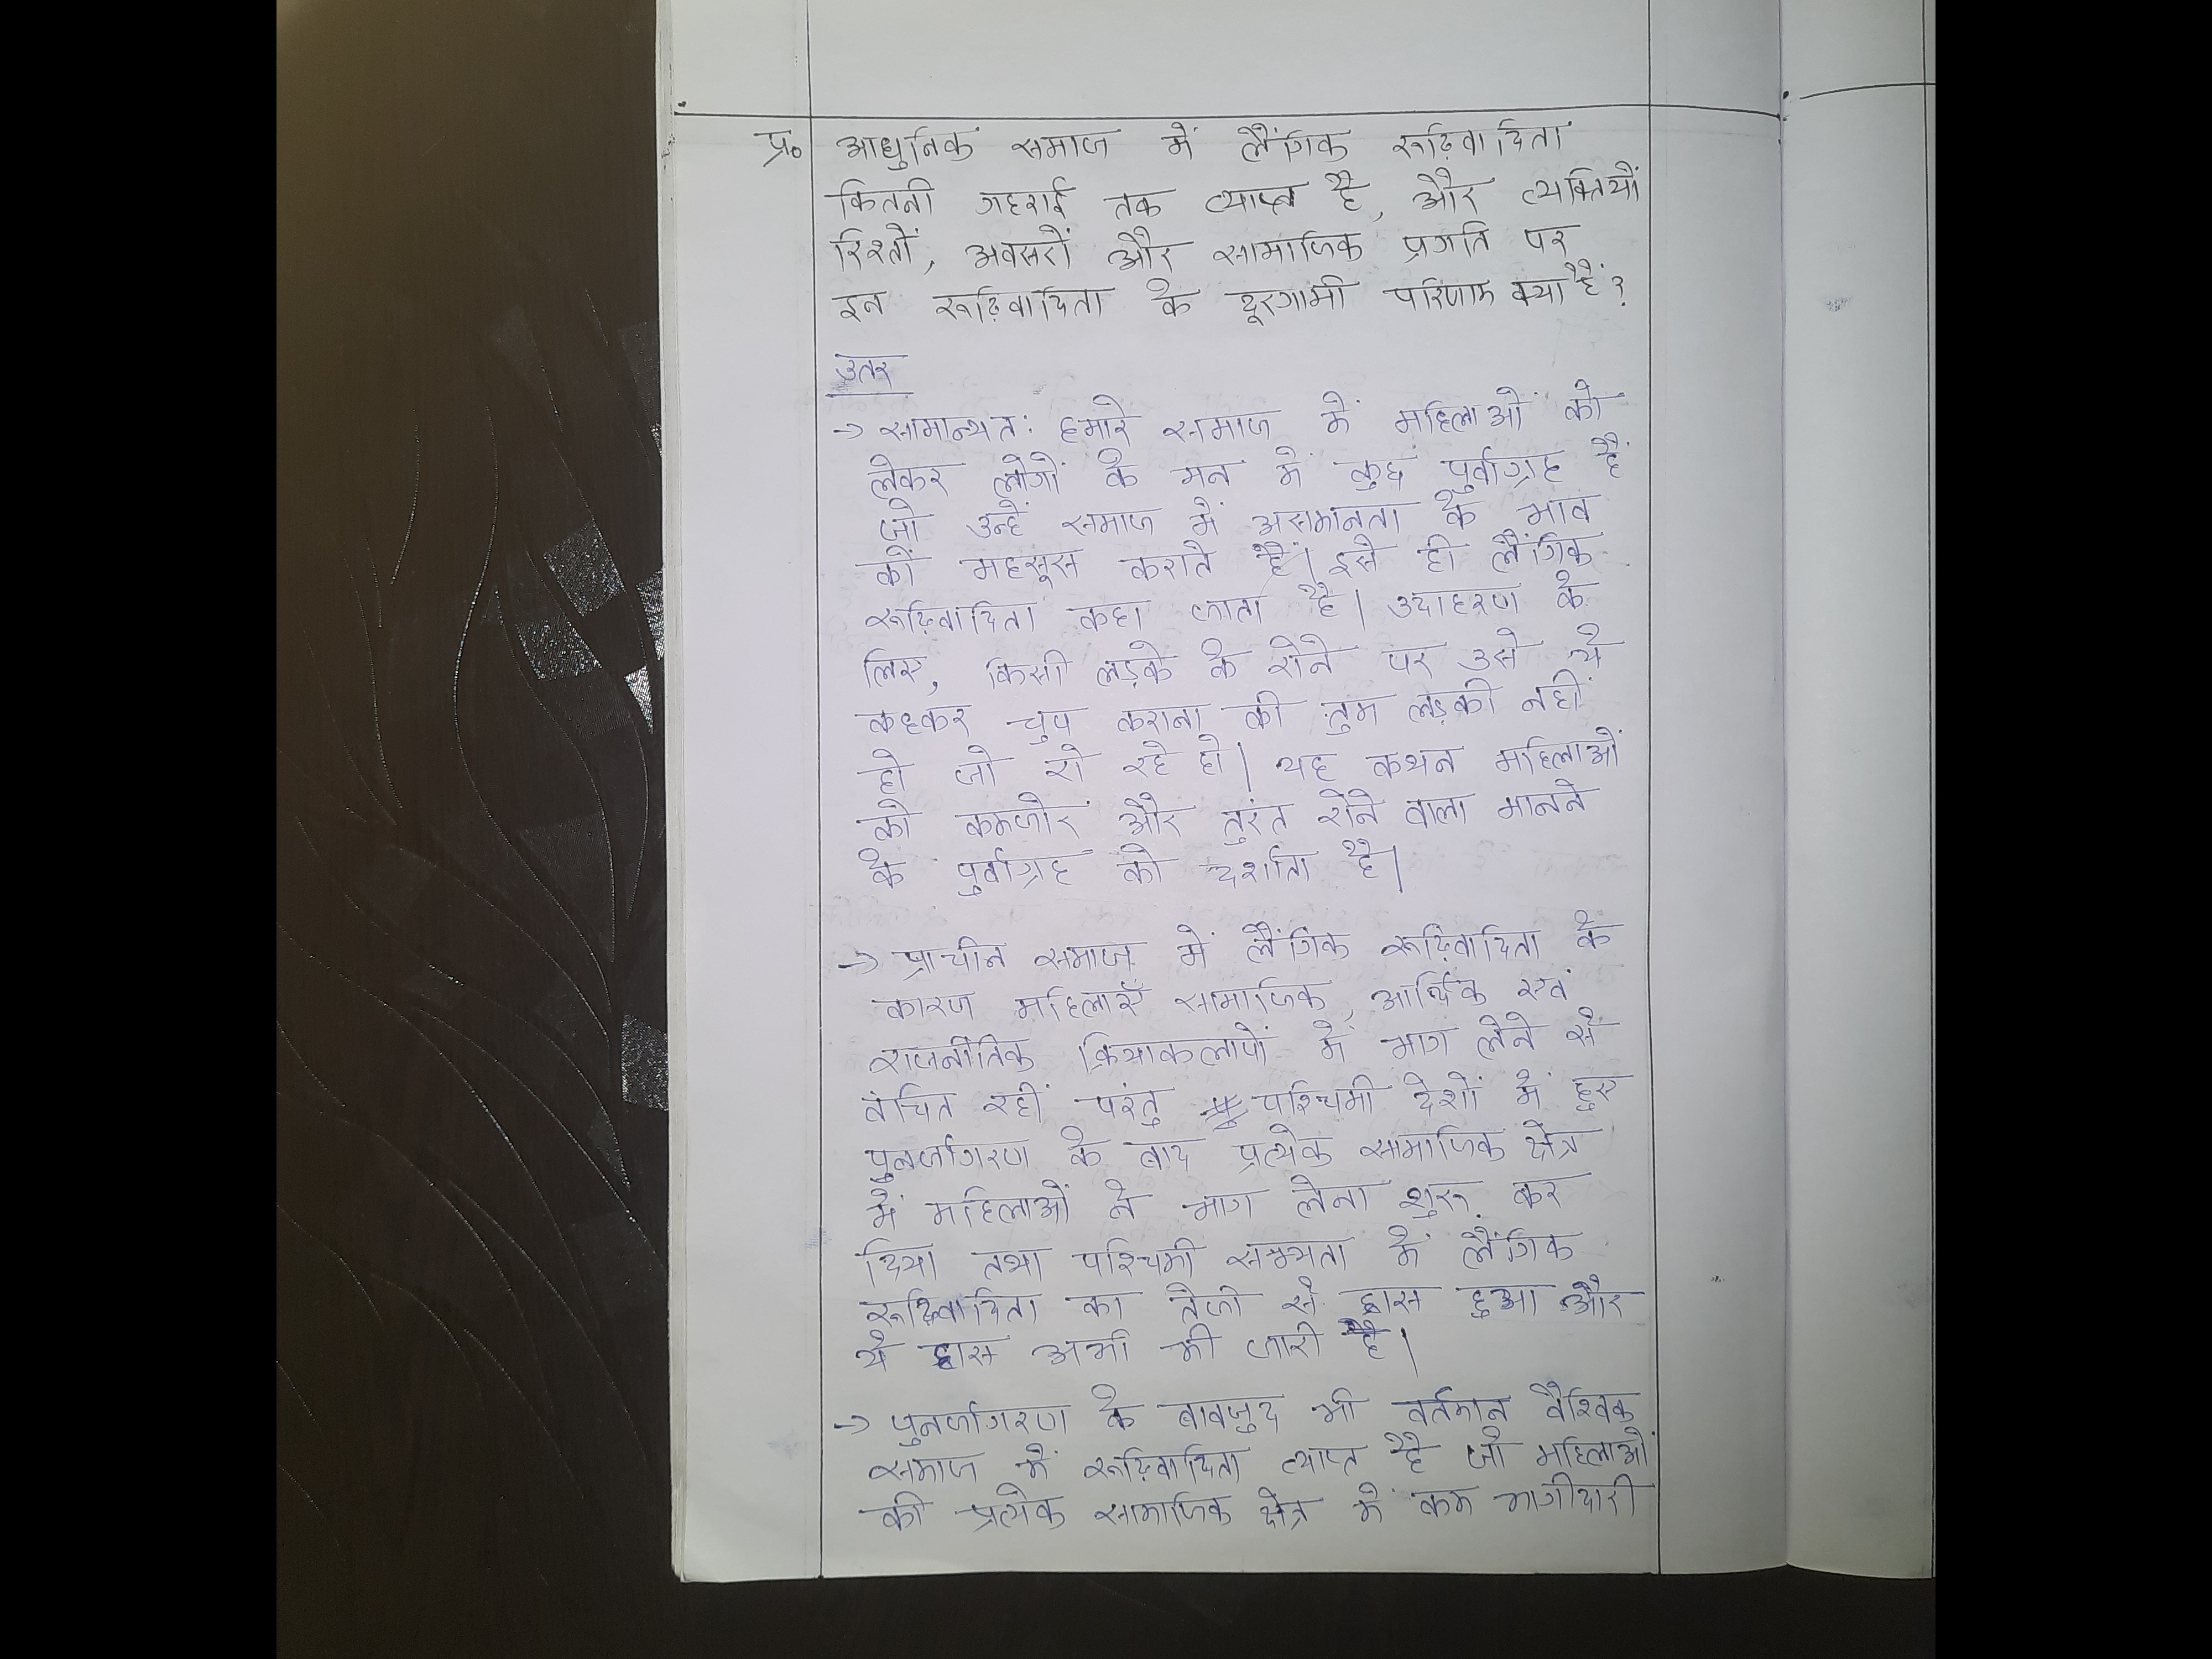 प्र० आधुनिक समाज में लैंगिक रूढ़िवादिता
कितनी गहराई तक व्याप्त है, और व्यक्तियों
रिश्तों, अवसरों और सामाजिक प्रगति पर
इन रूढ़िवादिता के दूरगामी परिणाम क्या हैं?
उतर
→ सामान्यत: हमारे समाज में महिलाओं को
लेकर लोगों के मन में कुछ पुर्वाग्रह हैं
जो उन्हें समाज में असमानता के भाव
को महसूस कराते हैं। इसे ही लैंगिक
रूढ़िवादिता कहा जाता है। उदाहरण के
लिए, किसी लड़के के रोने पर उसे ये
कहकर चुप कराना की तुम लड़की नहीं
हो जो रो रहे हो। यह कथन महिलाओं
को कमजोर और तुरंत रोने वाला मानने
के पुर्वाग्रह को दर्शाता है।
→ प्राचीन समाज में लैंगिक रूढ़िवादिता के
कारण महिलाएँ सामाजिक, आर्थिक एवं
राजनीतिक क्रियाकलापों में भाग लेने से
वंचित रहीं परंतु पश्चिमी देशों में हुए
पुनर्जागरण के बाद प्रत्येक सामाजिक क्षेत्र
में महिलाओं ने भाग लेना शुरू कर
दिया तथा पश्चिमी सभ्यता में लैंगिक
रूढ़िवादिता का तेजी से ह्रास हुआ और
ये ह्रास अभी भी जारी है।
→ पुनर्जागरण के बावजुद भी वर्तमान वैश्विक
समाज में रूढ़िवादिता व्याप्त है जो महिलाओं
की प्रत्येक सामाजिक क्षेत्र में कम भागीदारी